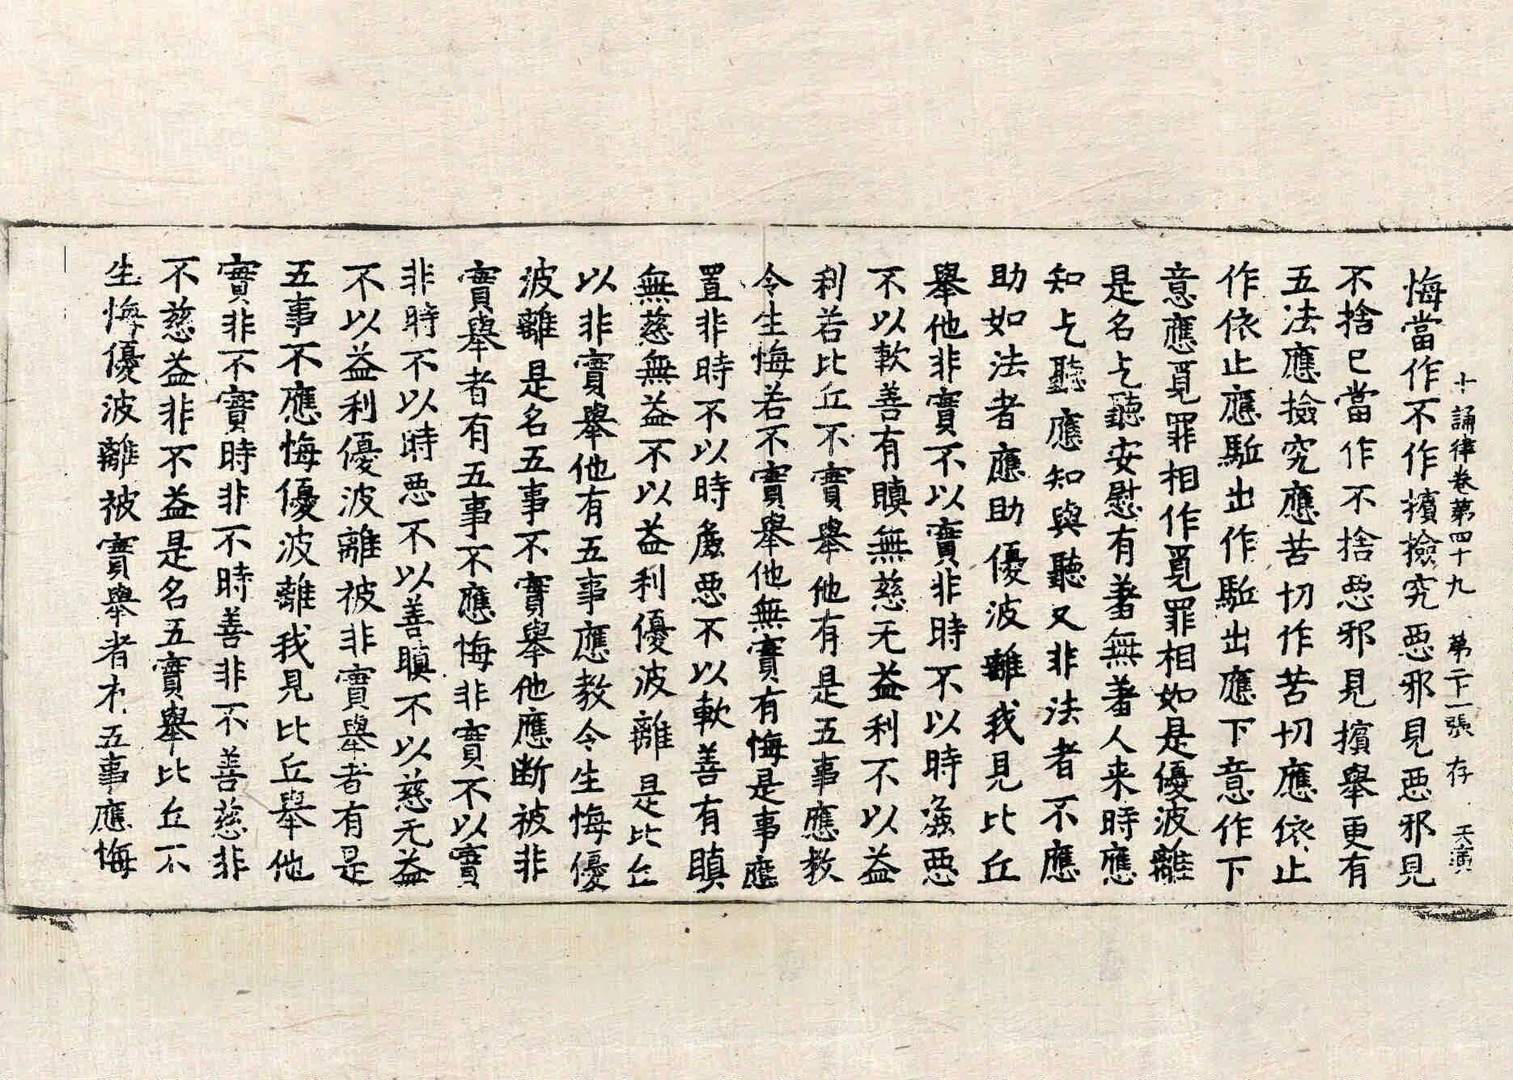 十誦律卷第四十九 第二十一張 存
悔當作不作擯撿究惡邪見惡邪見
不捨已當作不捨惡邪見擯舉更有
五法應撿究應苦切作苦切應依止
作依止應駈出作駈出應下意作下
意應覓罪相作覓罪相如是優波離
是名乞聽安慰有著無著人来時應
知乞聽應知與聽又非法者不應
助如法者應助優波離我見比丘
舉他非實不以實非時不以時麁惡
不以軟善有瞋無慈无益利不以益
利若比丘不實舉他有是五事應教
令生悔若不實舉他無實有悔是事應
置非時不以時麁惡不以軟善有瞋
無慈無益不以益利優波離是比丘
以非實舉他有五事應教令生悔優
波離是名五事不實舉他應断被非
實舉者有五事不應悔非實不以實
非時不以時惡不以善瞋不以慈无益
不以益利優波離被非實舉者有是
五事不應悔優波離我見比丘舉他
實非不實時非不時善非不善慈非
不慈益非不益是名五實舉比丘不
生悔優波離被實舉者有五事應悔